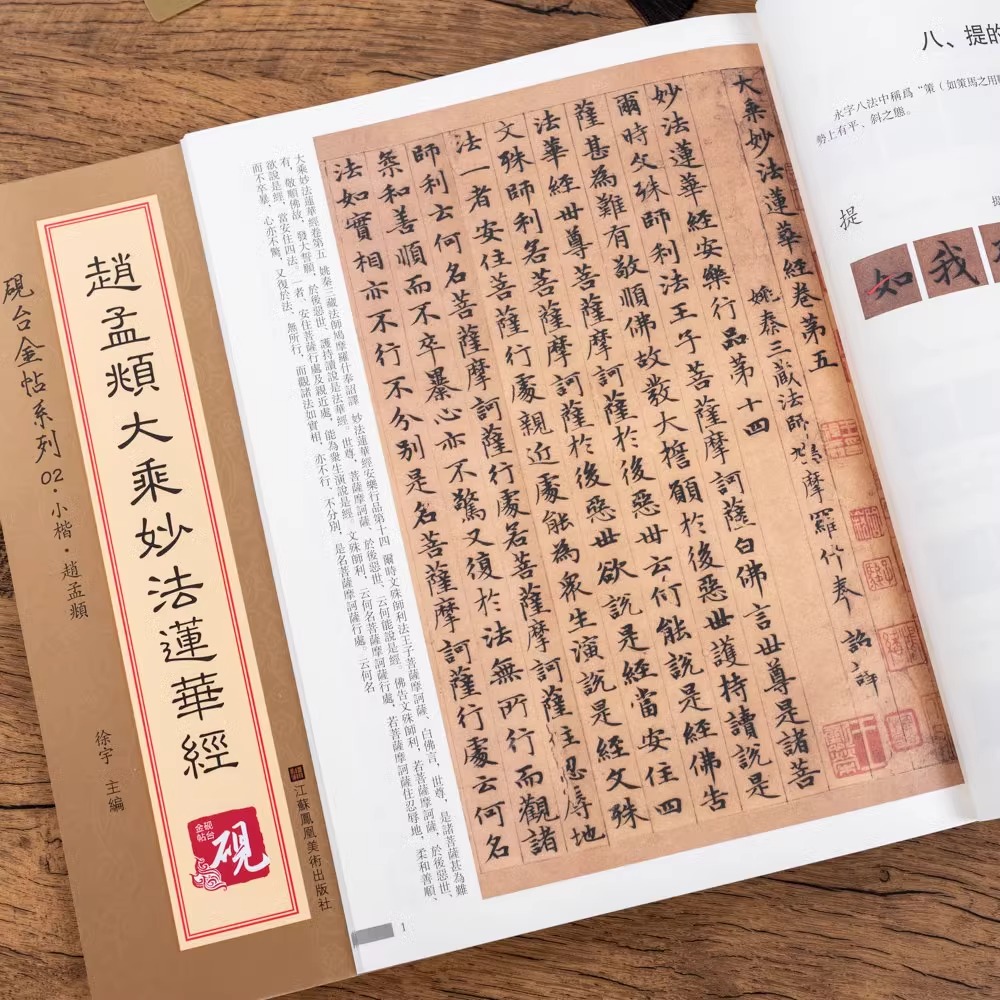 趙孟頫大乘妙法蓮華經
硯台金帖系列 02·小楷·趙孟頫
徐宇 主編
硯台金帖
硯
江蘇鳳凰美術出版社
大乘妙法蓮華經卷第五
姚秦三藏法師鳩摩羅什奉 詔譯
妙法蓮華經安樂行品第十四
爾時文殊師利法王子菩薩摩訶薩白佛言世尊是諸菩
薩甚為難有敬順佛故發大誓願於後惡世護持讀說是
法華經世尊菩薩摩訶薩於後惡世云何能說是經佛告
文殊師利若菩薩摩訶薩於後惡世欲說是經當安住四
法一者安住菩薩行處親近處能為眾生演說是經文殊
師利云何名菩薩摩訶薩行處若菩薩摩訶薩住忍辱地
柔和善順而不卒暴心亦不驚又復於法無所行而觀諸
法如實相亦不行不分別是名菩薩摩訶薩行處云何名
大乘妙法蓮華經卷第五 姚秦三藏法師鳩摩羅什奉詔譯 妙法蓮華經安樂行品第十四 爾時文殊師利法王子菩薩摩訶薩、白佛言，世尊，是諸菩薩甚為難
有，敬順佛故，發大誓願，於後惡世、護持讀說是法華經。世尊，菩薩摩訶薩、於後惡世、云何能說是經。佛告文殊師利，若菩薩摩訶薩，於後惡世、
欲說是經，當安住四法。一者、安住菩薩行處及親近處，能為眾生演說是經。文殊師利，云何名菩薩摩訶薩行處，若菩薩摩訶薩住忍辱地，柔和善順、
而不卒暴，心亦不驚，又復於法、無所行，而觀諸法如實相，亦不行、不分別，是名菩薩摩訶薩行處。云何名
1
八、提的
永字八法中稱爲“策（如策馬之用
勢上有平、斜之態。
提
如 我